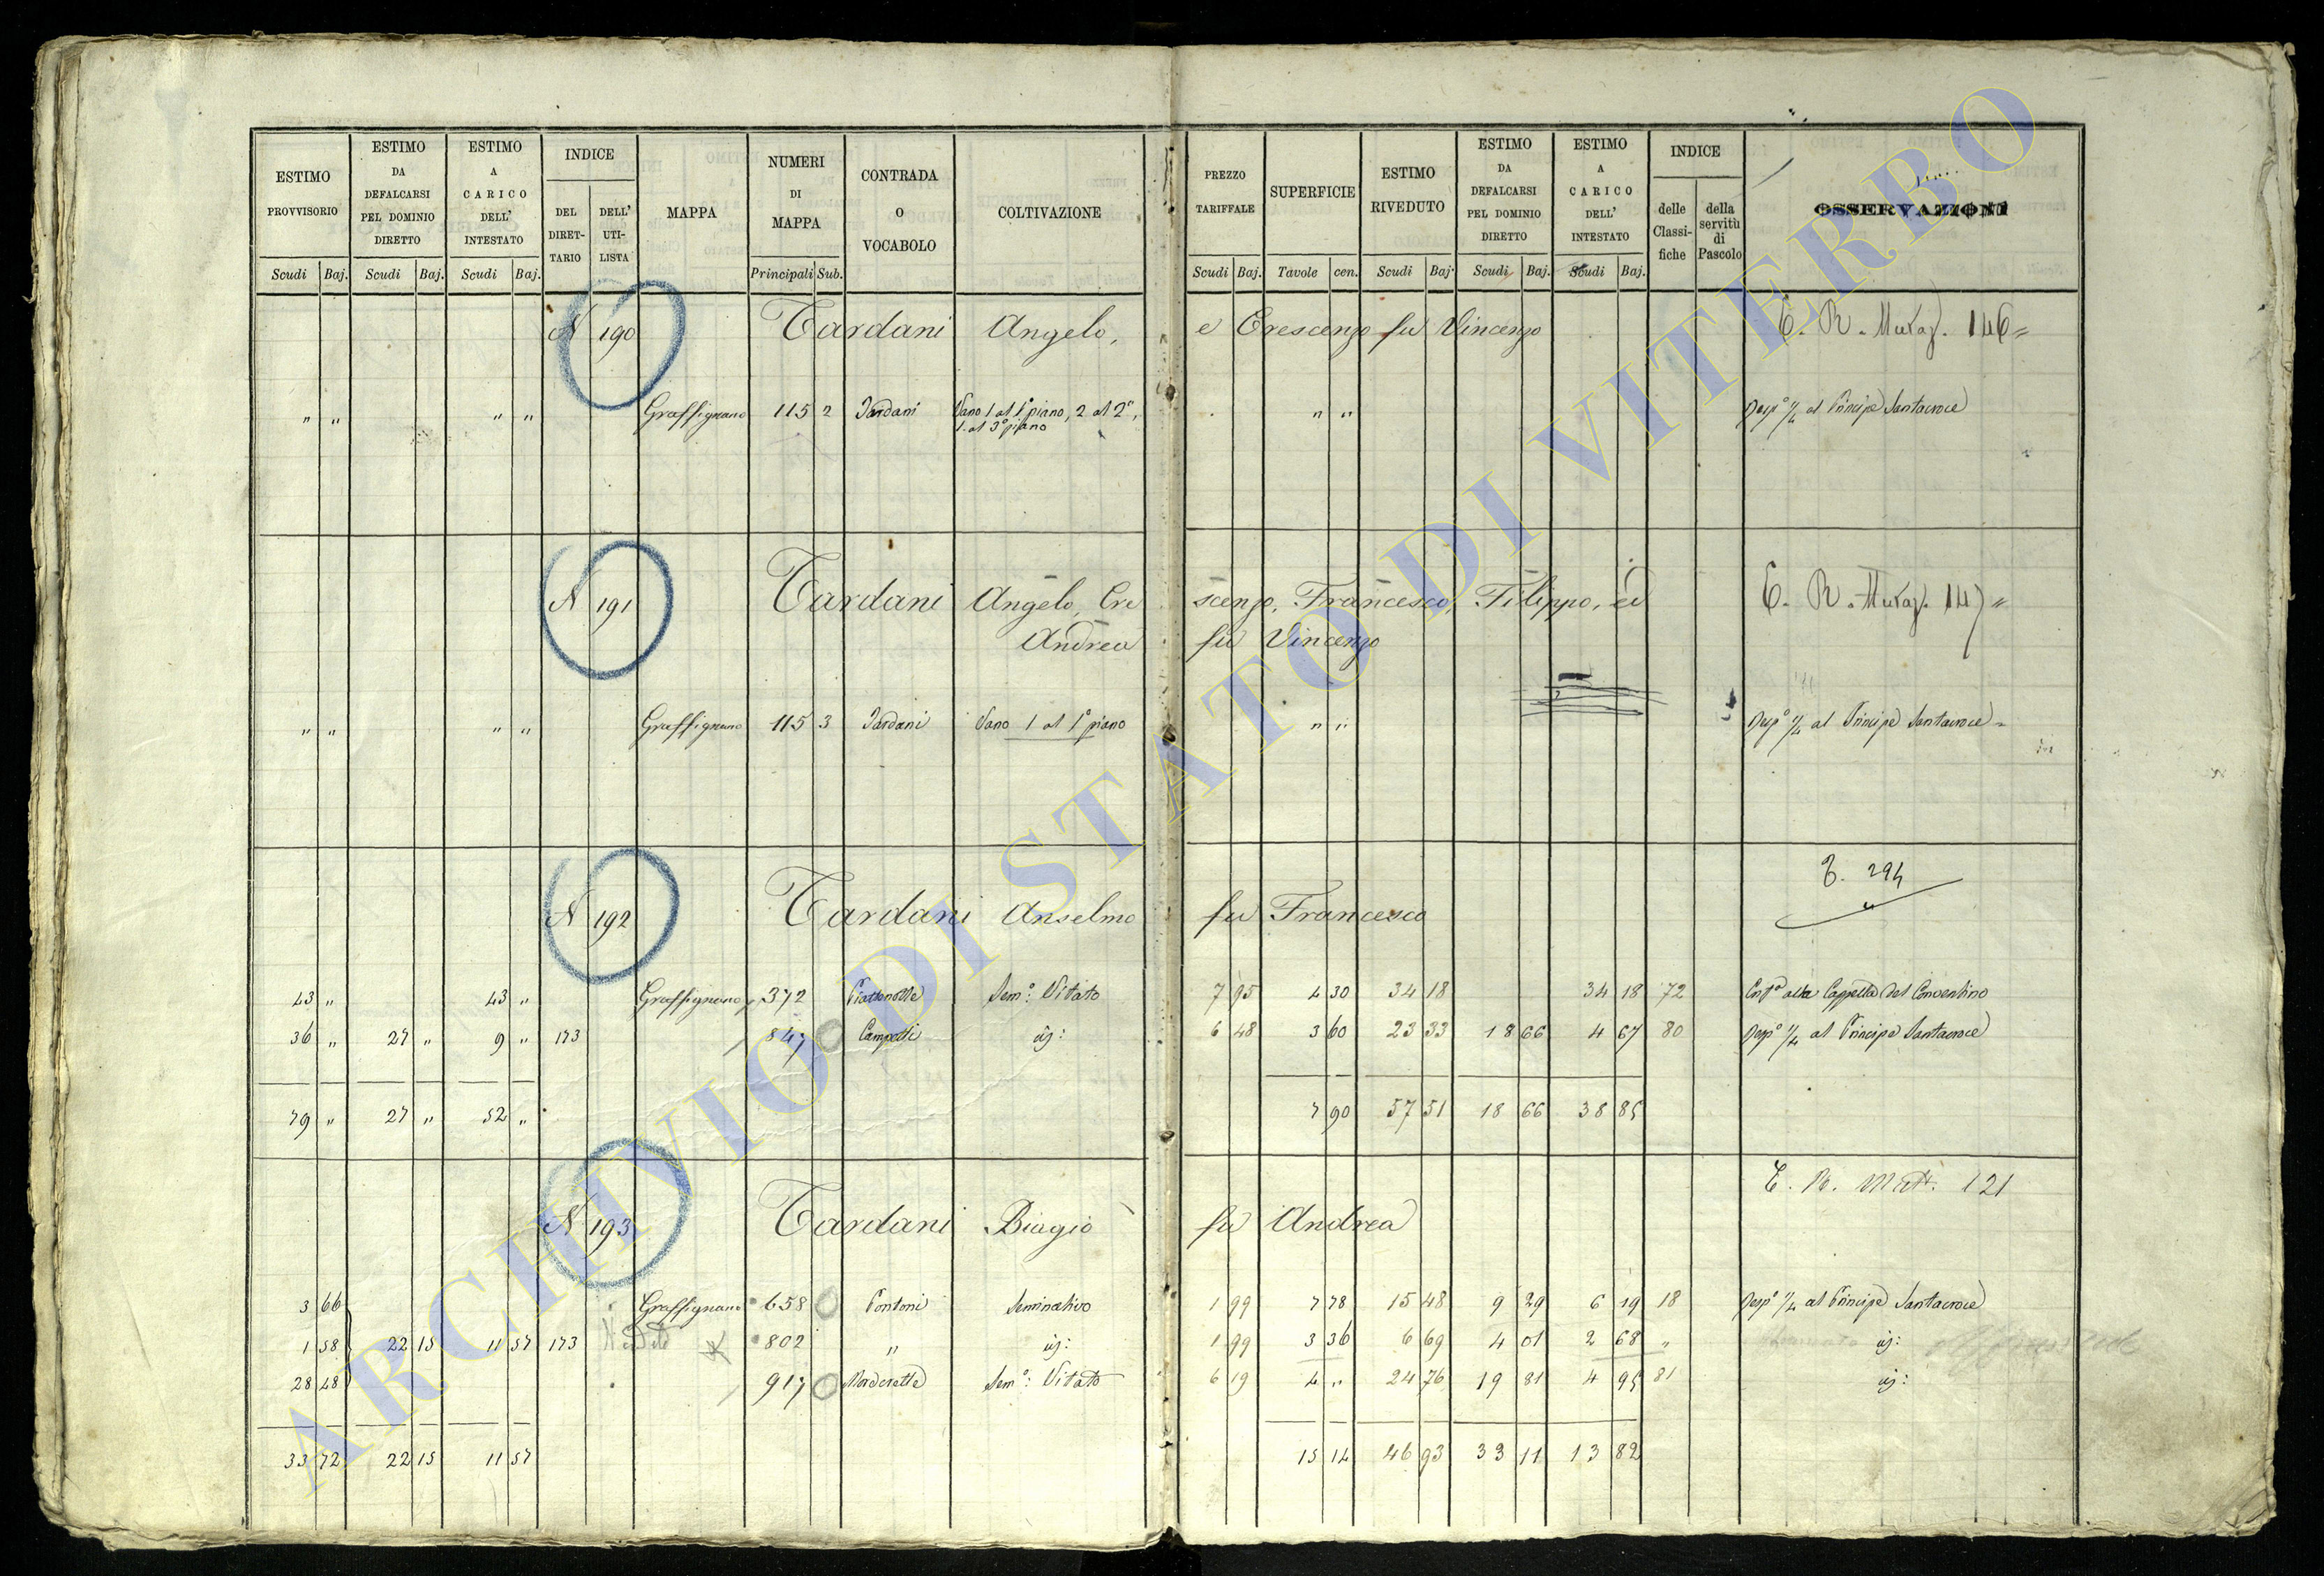 ESTIMO PROVVISORIO Scudi Baj.
ESTIMO DA DEFALCARSI PEL DOMINIO DIRETTO Scudi Baj.
ESTIMO A CARICO DELL' INTESTATO Scudi Baj.
INDICE DEL DIRETTARIO DELL' UTILISTA
MAPPA
NUMERI DI MAPPA Principali Sub.
CONTRADA O VOCABOLO
COLTIVAZIONE
PREZZO TARIFFALE Scudi Baj.
SUPERFICIE Tavole cen.
ESTIMO RIVEDUTO Scudi Baj.
ESTIMO DA DEFALCARSI PEL DOMINIO DIRETTO Scudi Baj.
ESTIMO A CARICO DELL' INTESTATO Scudi Baj.
INDICE delle Classifiche della servitù di Pascolo
OSSERVAZIONI
N 190 Tardani Angelo, e Crescenzo fu Vincenzo 146
" " " " Graffignano 115 2 Tardani Vano 1 al 1° piano, 2 al 2°, " " Risp.e 1/4 al Principe Santacroce
1 al 3° piano
N 191 Tardani Angelo, Crescenzo, Francesco, Filippo, ed 147
Andrea fu Vincenzo
" " " " Graffignano 115 3 Tardani Vano 1 al 1° piano " " 1/4 al Principe Santacroce
294
N 192 Tardani Anselmo fu Francesco
43 " 43 " Graffignano 372 Sem.° Vitato 7 95 4 30 34 18 34 18 72 alla Cappella del Conventino
36 " 27 " 9 " 173 847 Campetti id: 6 48 3 60 23 33 18 66 4 67 80 1/4 al Principe Santacroce
79 " 27 " 52 " 7 90 57 51 18 66 38 85
121
N 193 Tardani Biagio fu Andrea
3 66 Graffignano 658 Pontoni Seminativo 1 99 7 78 15 48 9 29 6 19 18 1/4 al Principe Santacroce
1 58 22 15 11 57 173 802 " id: 1 99 3 36 6 69 4 01 2 68 " id:
28 48 917 Sem.° Vitato 6 19 4 " 24 76 19 81 4 95 81 id:
33 72 22 15 11 57 15 14 46 93 33 11 13 82
ARCHIVIO DI STATO DI VITERBO